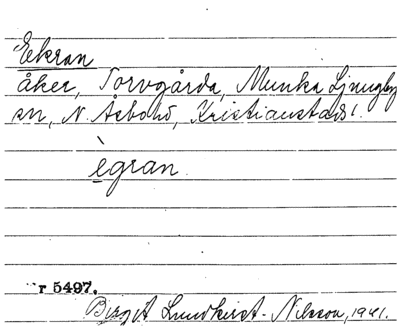 Eekran
åker, Torvgårda, Munka Ljungby
sn, N. Åsbo hd, Kristianstads l.
ègran
r 5497.
Birgit Lundkvist-Nilsson, 1941.